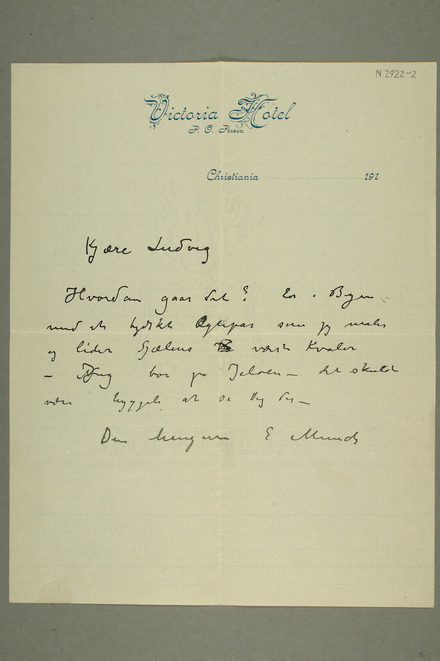 N 2922-2
Victoria Hotel
P. O. Persen
Christiania 191
Kjære Ludvig
Hvordan gaar det? Er i Byen
med et tydskt Ægtepar som jeg maler
og lider Sjælens værste Kvaler
– Jeg bor på Jeløen – det skulde
være hyggeligt at se Dig der –
Din hengivne E Munch